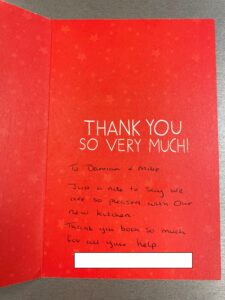 THANK YOU
SO VERY MUCH!
To Damian & Mike
Just a note to say we
are so pleased with our
new kitchen.
Thank you both so much
for all your help